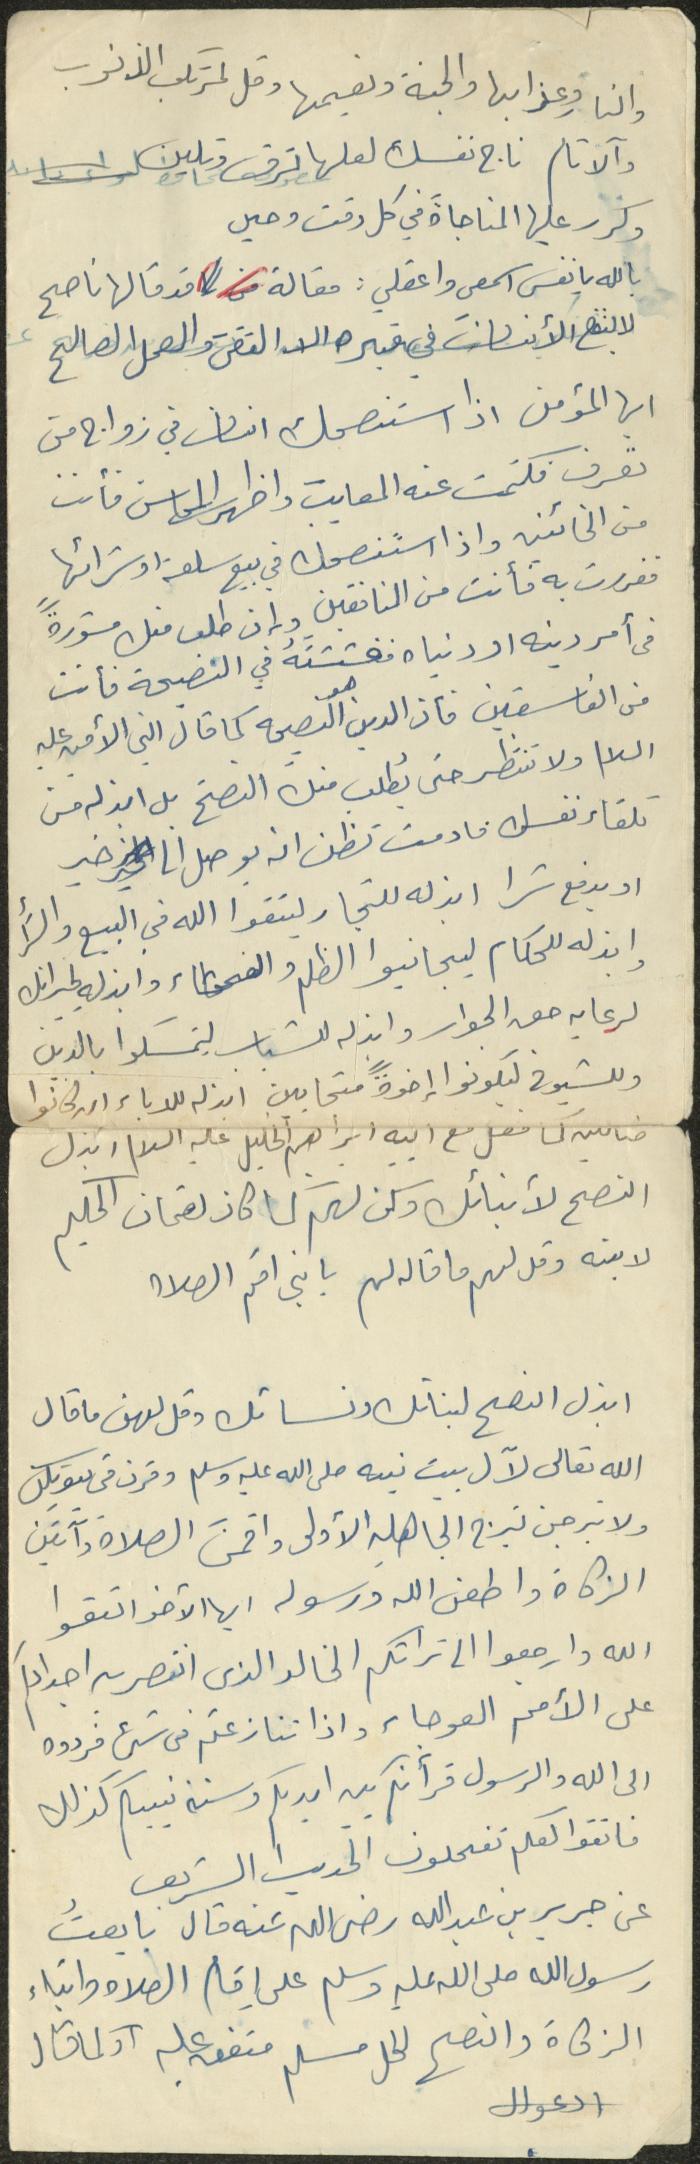 والنار وعذابها والجنة ونعيمها وقل لمرتكب الذنوب
والآثام ناج نفسك لعلها ترق وتلين
وكرر عليها المناجاة في كل وقت وحين
بالله يا نفس اسمعي واعقلي : مقالة قد قالها ناصح
لا ينفع الأنسان في قبره الا التقى والعمل الصالح
ايها المؤمن اذا استنصحك انسان في زواج من
تعرف فكتمت عنه المعايب واظهرت المحاسن فأنت
من الخائنين واذا استنصحك في بيع سلعة او شرائها
فغررت به فأنت من المنافقين وإن طلب منك مشورةً
في أمر دينه او دنياه فغششتهُ في النصيحة فأنت
من الفاسقين فان الدين هو النصيحه كما قال النبي الأمين عليه
السلام ولا تنتظر حتى يُطلب منك النصح بل ابذله من
تلقاء نفسك ما دمت تظن انه يوصل الى خير
او يدفع شرا ابذله للتجار ليتقوا الله في البيع والشرأ
وابذله للحكام ليجانبوا الظلم والفحشاء وابذله لجيرانك
لرعاية حق الجوار وابذله للشباب ليتمسكوا بالدين
وللشيوخ ليكونوا إخوةً متحابين ابذله للاباء ان كانوا
ضالين كما فعل مع ابيه ابراهيم الخليل عليه السلام ابذل
النصح لأبنائك وكن لهم كما كان لقمان الحكيم
لابنه وقل لهم ما قاله لهم يا بني اقم الصلاة
ابذل النصح لبناتك ونسائك وقل لهن ما قال
الله تعالى لآل بيت نبيه صلى الله عليه وسلم وقرن في بيوتكن
ولا تبرجن تبرج الجاهلية الأولى واقمن الصلاة وآتين
الزكاة واطعن الله ورسوله ايها الأخوا اتقوا
الله وارجعوا الى تراثكم الخالد الذى انتصر به اجدادكم
على الأمم العوجاء واذا تنازعتم في شئ فردوه
الى الله والرسول قرأنكم بين ايديكم وسنة نبيكم كذلك
فاتقوا لعلكم تفحلون الحديث الشريف
عن جرير بن عبدالله رضى الله عنه قال بايعتُ
رسول الله صلى الله عليه وسلم على إقام الصلاة وايتاء
الزكاة والنصح لكل مسلم متفق عليه او كما قال
ادعوا الله